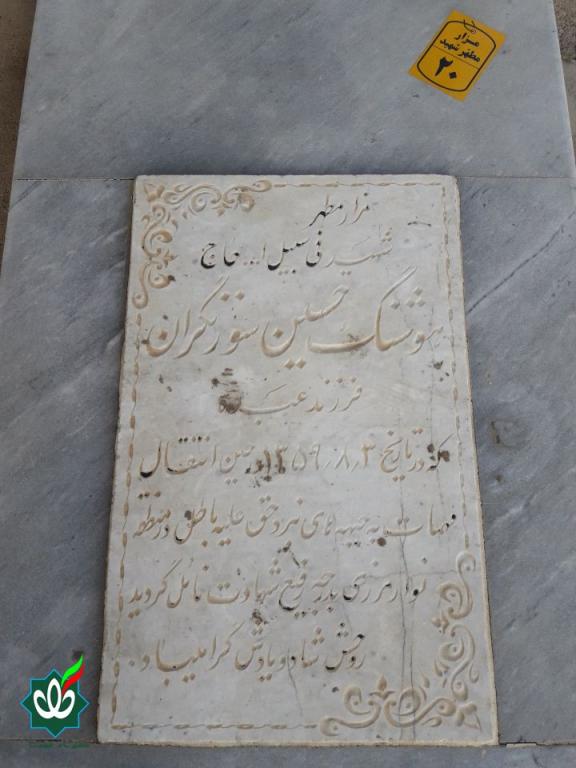 مزار
مطهر شهید
۲۰
مزار مطهر
شهید فی سبیل ا... حاج
هوشنگ حسین سوزنگران
فرزند عبد
که در تاریخ ۱۳۵۹٫۸٫۳ در حین انتقال
مهمات به جبهه های نبرد حق علیه باطل در منطقه
نوار مرزی بدرجه رفیع شهادت نائل گردید
روحش شاد و یادش گرامیباد